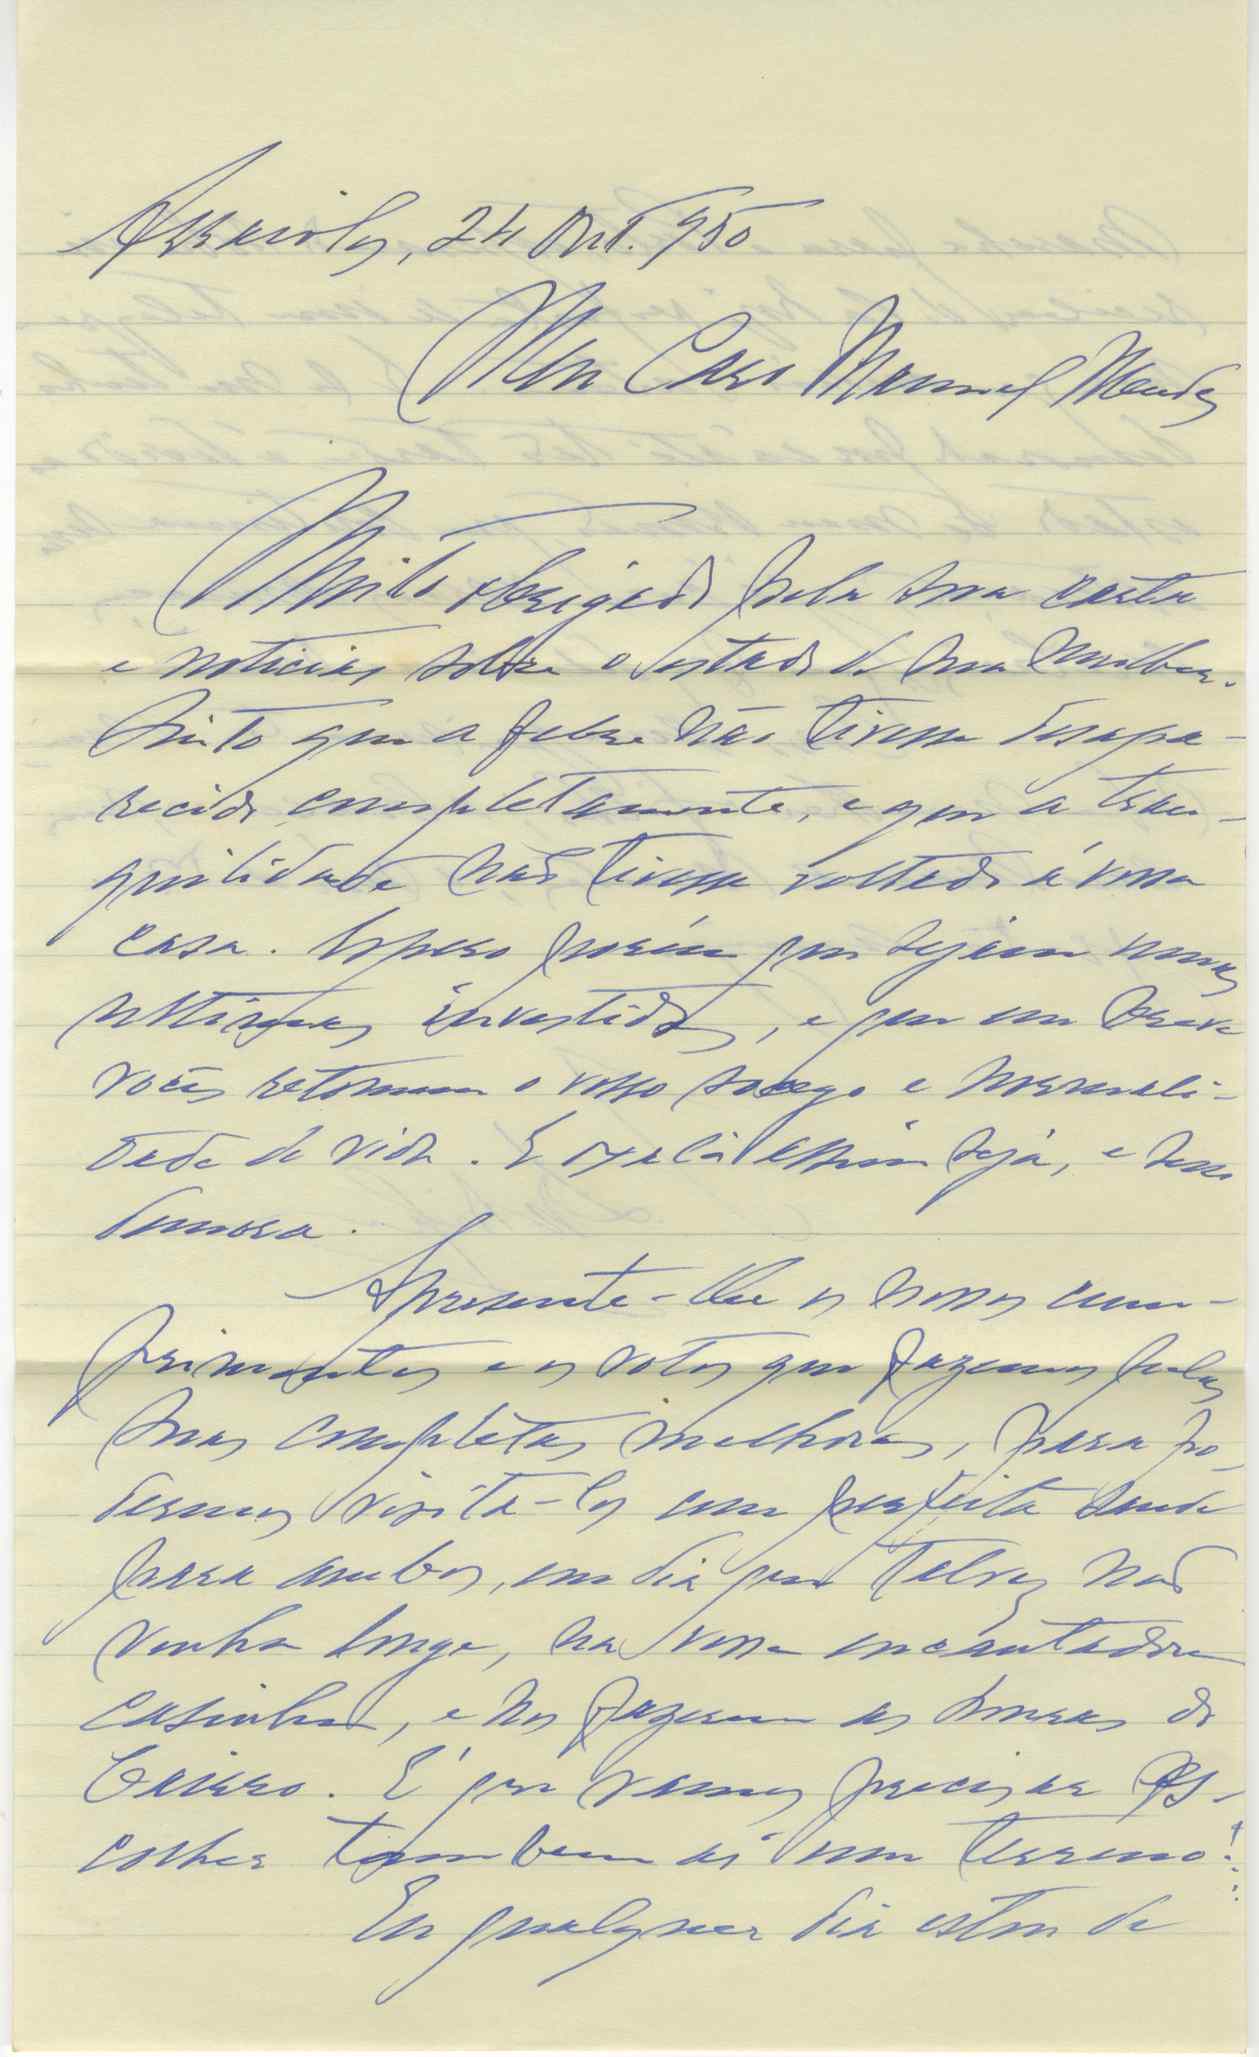 Arraiolos, 24 Out. 950
Meu Caro Manuel Mendes
Muito obrigado pela sua carta
e noticias sobre o estado de sua mulher.
Sinto que a febre não tivesse desapa-
recido completamente, e que a tran-
quilidade não tivesse voltado á vossa
casa. Espero porém que sejam umas
ultimas investidas, e que em breve
vocês retomem o vosso socego e normali-
dade de vida. E oxalá assim seja, e sem
demora.
Apresente-lhe os nossos cum-
primentos e os votos que fazemos pelas
suas completas melhoras, para po-
dermos visita-los com perfeita saude
para ambos, em dia que talvez não
venha longe, na vossa encantadora
casinha, e nos fazerem as honras do
Bairro. É que vamos precisar es-
colher tambem aí um terreno!...
Em qualquer dia estou de